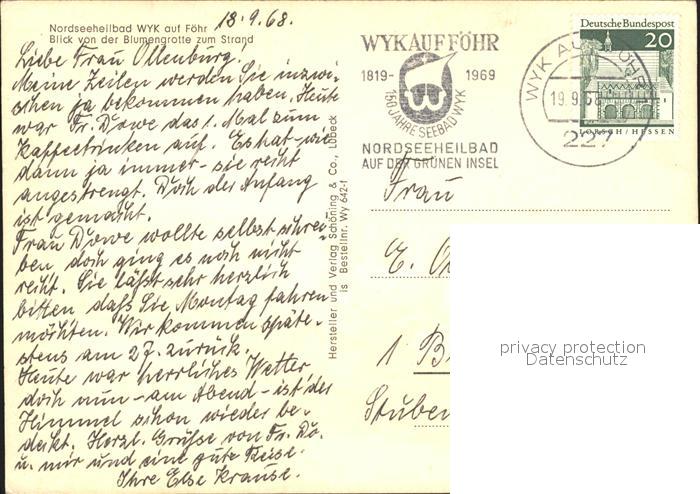 Nordseeheilbad WYK auf Föhr
Blick von der Blumengrotte zum Strand
18.9.68.
Liebe Frau Ollenburg!
Meine Zeilen werden Sie inzwi-
schen ja bekommen haben. Heute
war Fr. Dowe das 1. Mal zum
Kaffeetrinken auf. Es hat - wie
dann ja immer - sie recht
angestrengt. Doch der Anfang
ist gemacht.
Frau Dowe wollte selbst schrei-
ben, doch ging es noch nicht
recht. Sie läßt sehr herzlich
bitten daß Sie Montag fahren
möchten. Wir kommen späte-
stens am 27. zurück.
Heute war herrliches Wetter
doch nun - am Abend - ist der
Himmel schon wieder be-
deckt. Herzl. Grüße von Fr. Do.
u. mir und eine gute Reise.
Ihre Else Krause.
Hersteller und Verlag Schöning & Co., Lübeck
is Bestellnr. Wy 642-f
WYK AUF FÖHR
1819- 1969
150 JAHRE SEEBAD WYK
NORDSEEHEILBAD
AUF DER GRÜNEN INSEL
WYK AUF FÖHR
19.9.68
227
Deutsche Bundespost
20
LORSCH/HESSEN
Frau
E.
1 B
Stuben
privacy protection
Datenschutz